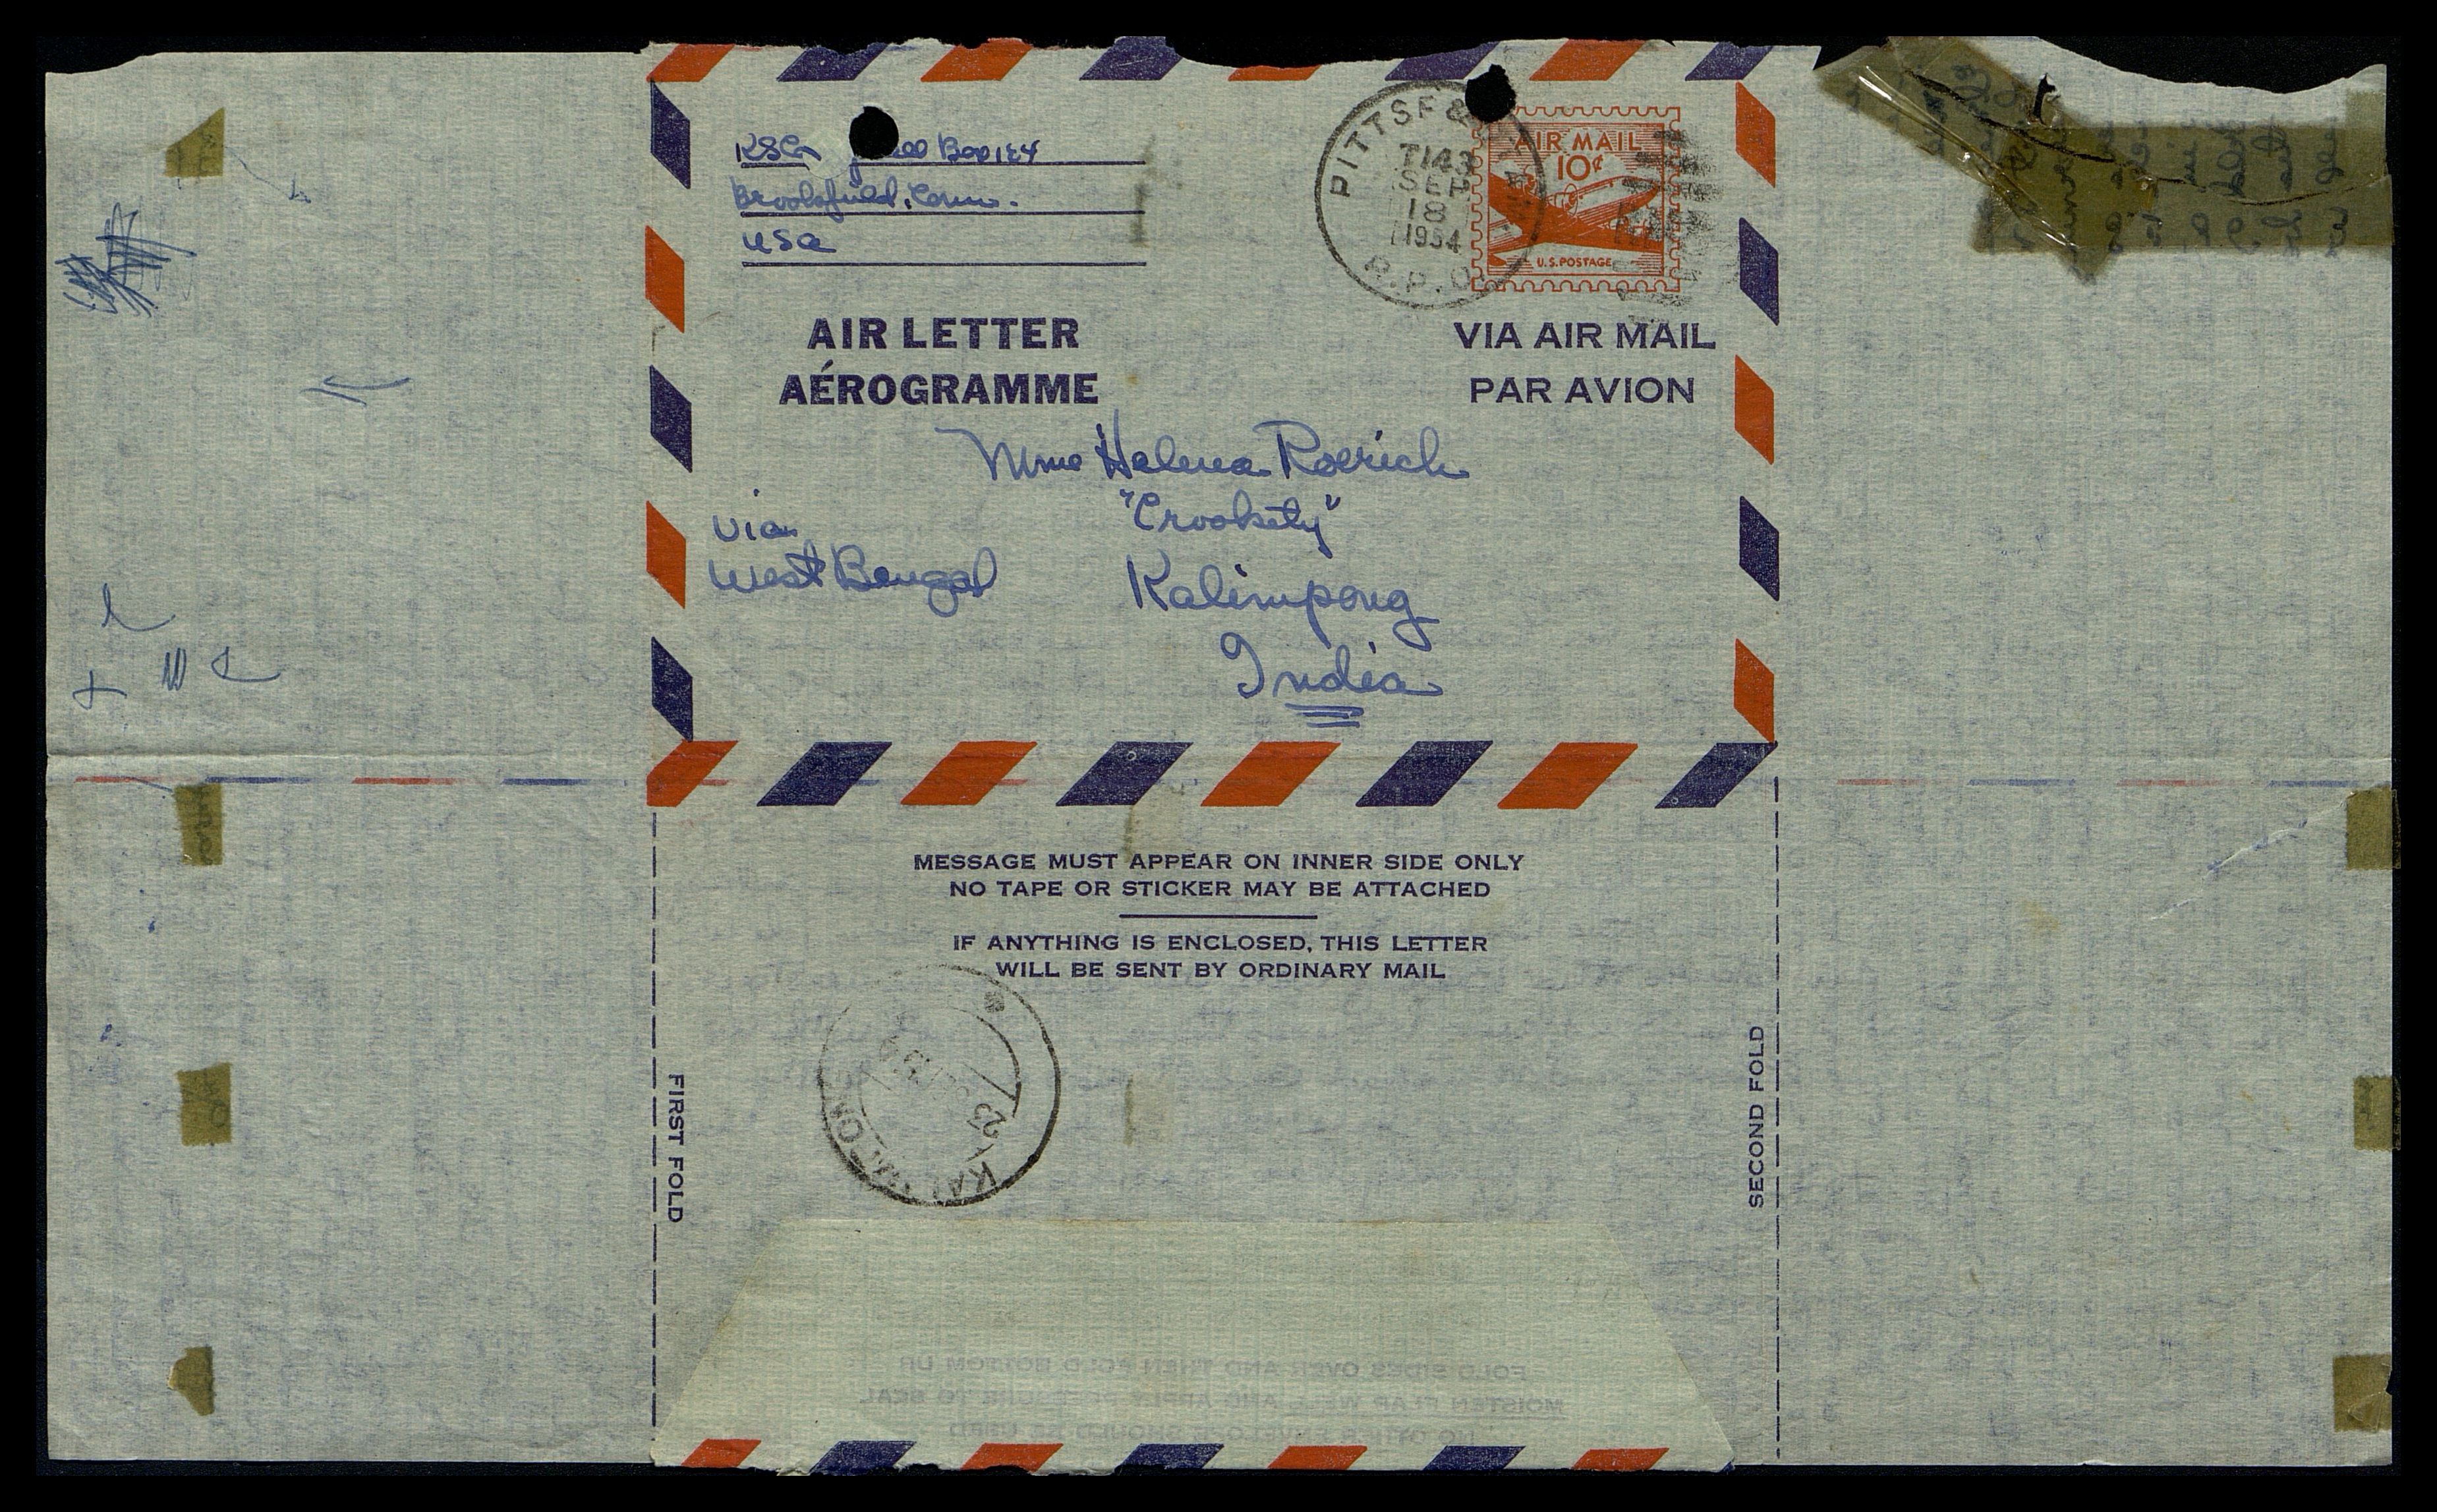 Box 124
Brookfield, Conn.
USA
PITTSF &
T143
SEP
18
1954
R.P.O.
AIR MAIL
10¢
U.S. POSTAGE
AIR LETTER
AÉROGRAMME
VIA AIR MAIL
PAR AVION
Mme Helena Roerich
"Crookety"
Kalimpong
India
via
West Bengal
MESSAGE MUST APPEAR ON INNER SIDE ONLY
NO TAPE OR STICKER MAY BE ATTACHED
IF ANYTHING IS ENCLOSED, THIS LETTER
WILL BE SENT BY ORDINARY MAIL
FIRST FOLD
SECOND FOLD
KALIMPONG
23
FOLD SIDES OVER AND THEN FOLD BOTTOM UP
MOISTEN FLAP WELL AND APPLY PRESSURE TO SEAL
NO OTHER ENVELOPE SHOULD BE USED